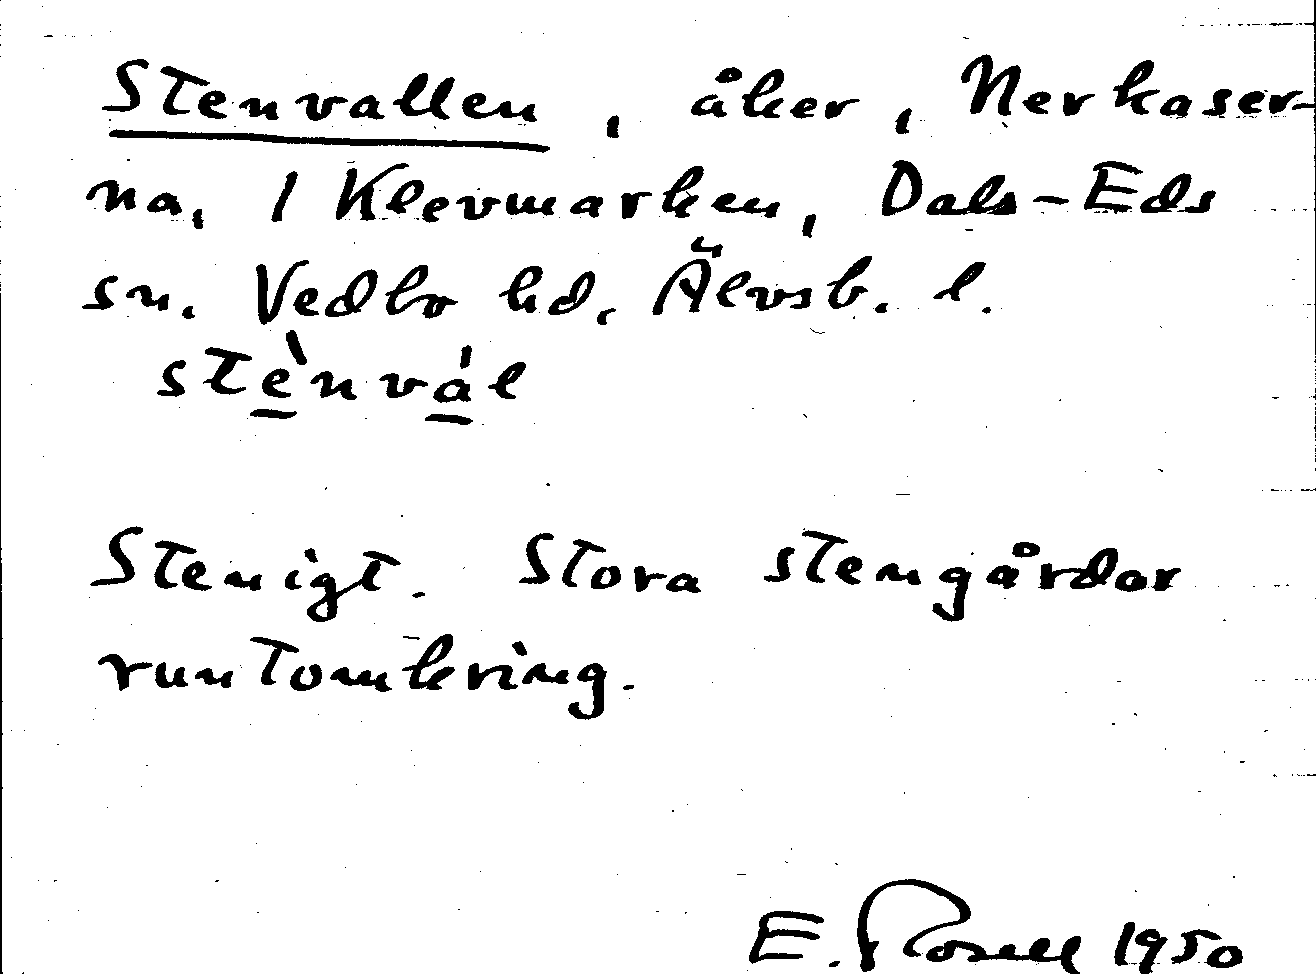 Stenvallen, åker, Nerkaser-
na, 1 Klevmarken, Dals-Eds
sn. Vedbo hd, Älvsb. l.
stènvál
Stenigt. Stora stengårdar
runtomkring.
E. Rosell 1950